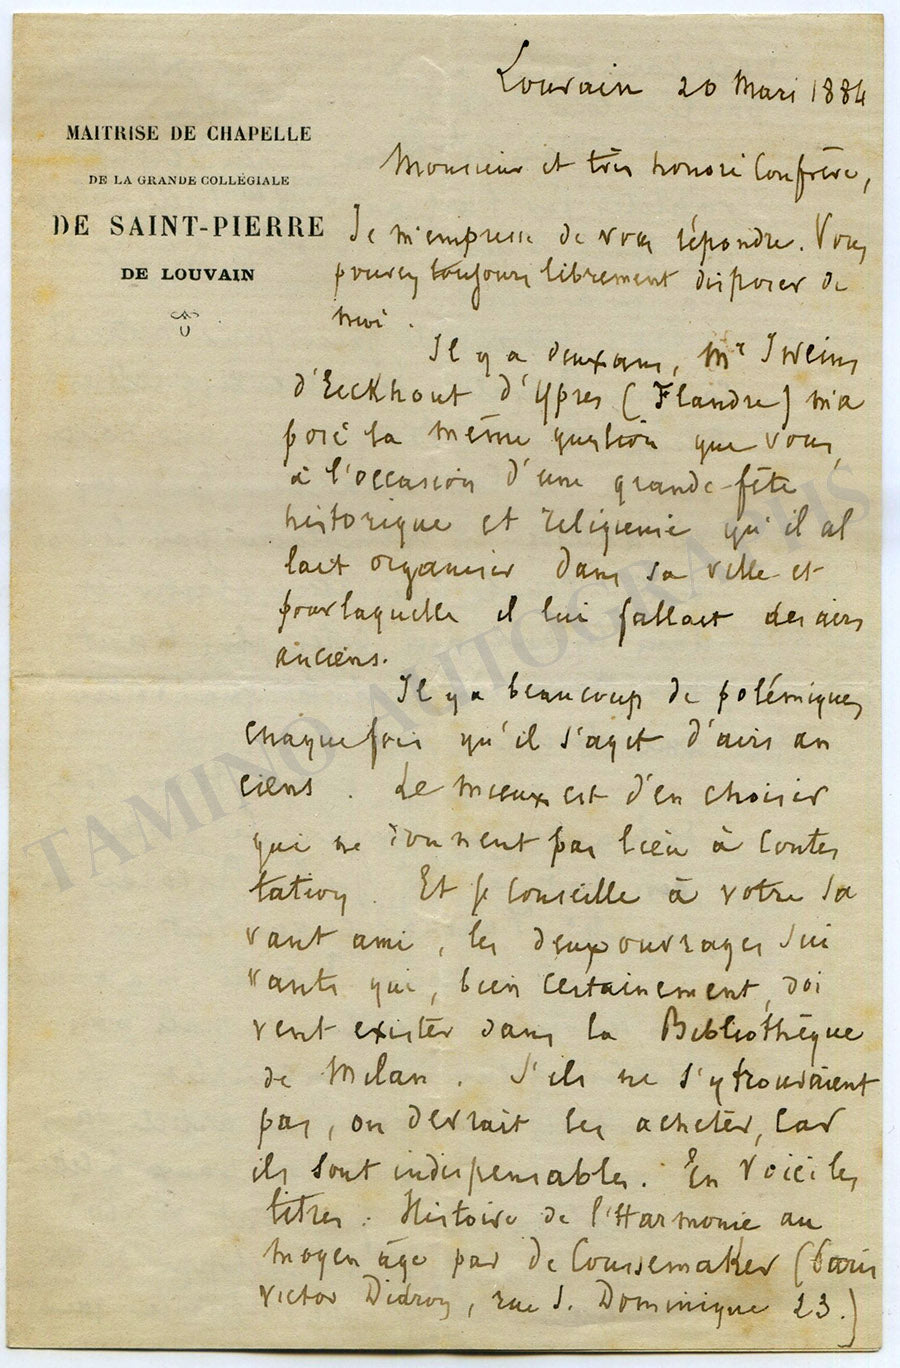 Louvain 20 Mars 1884
MAITRISE DE CHAPELLE
DE LA GRANDE COLLÉGIALE
DE SAINT-PIERRE
DE LOUVAIN
Monsieur et très honoré Confrère,
Je m'empresse de vous répondre. Vous
pouvez toujours librement disposer de
moi.
Il y a deux ans, Mr Iweins
d'Eeckhout d'Ypres (Flandre) m'a
posé la même question que vous,
à l'occasion d'une grande fête
historique et religieuse qu'il al
lait organiser dans sa ville et
pour laquelle il lui fallait des airs
anciens.
Il y a beaucoup de polémiques
chaque fois qu'il s'agit d'airs an
ciens. Le mieux est d'en choisir
qui ne donnent pas lieu à contes
tation. Et je conseille à votre sa
vant ami, les deux ouvrages sui
vants qui, bien certainement, doi
vent exister dans la Bibliothèque
de Milan. S'ils ne s'y trouvaient
pas, on devrait les acheter, car
ils sont indispensables. En voici les
titres. Histoire de l'Harmonie au
moyen âge par de Coussemaker (Paris
Victor Didron, rue S. Dominique 23.)
TAMINO AUTOGRAPHS